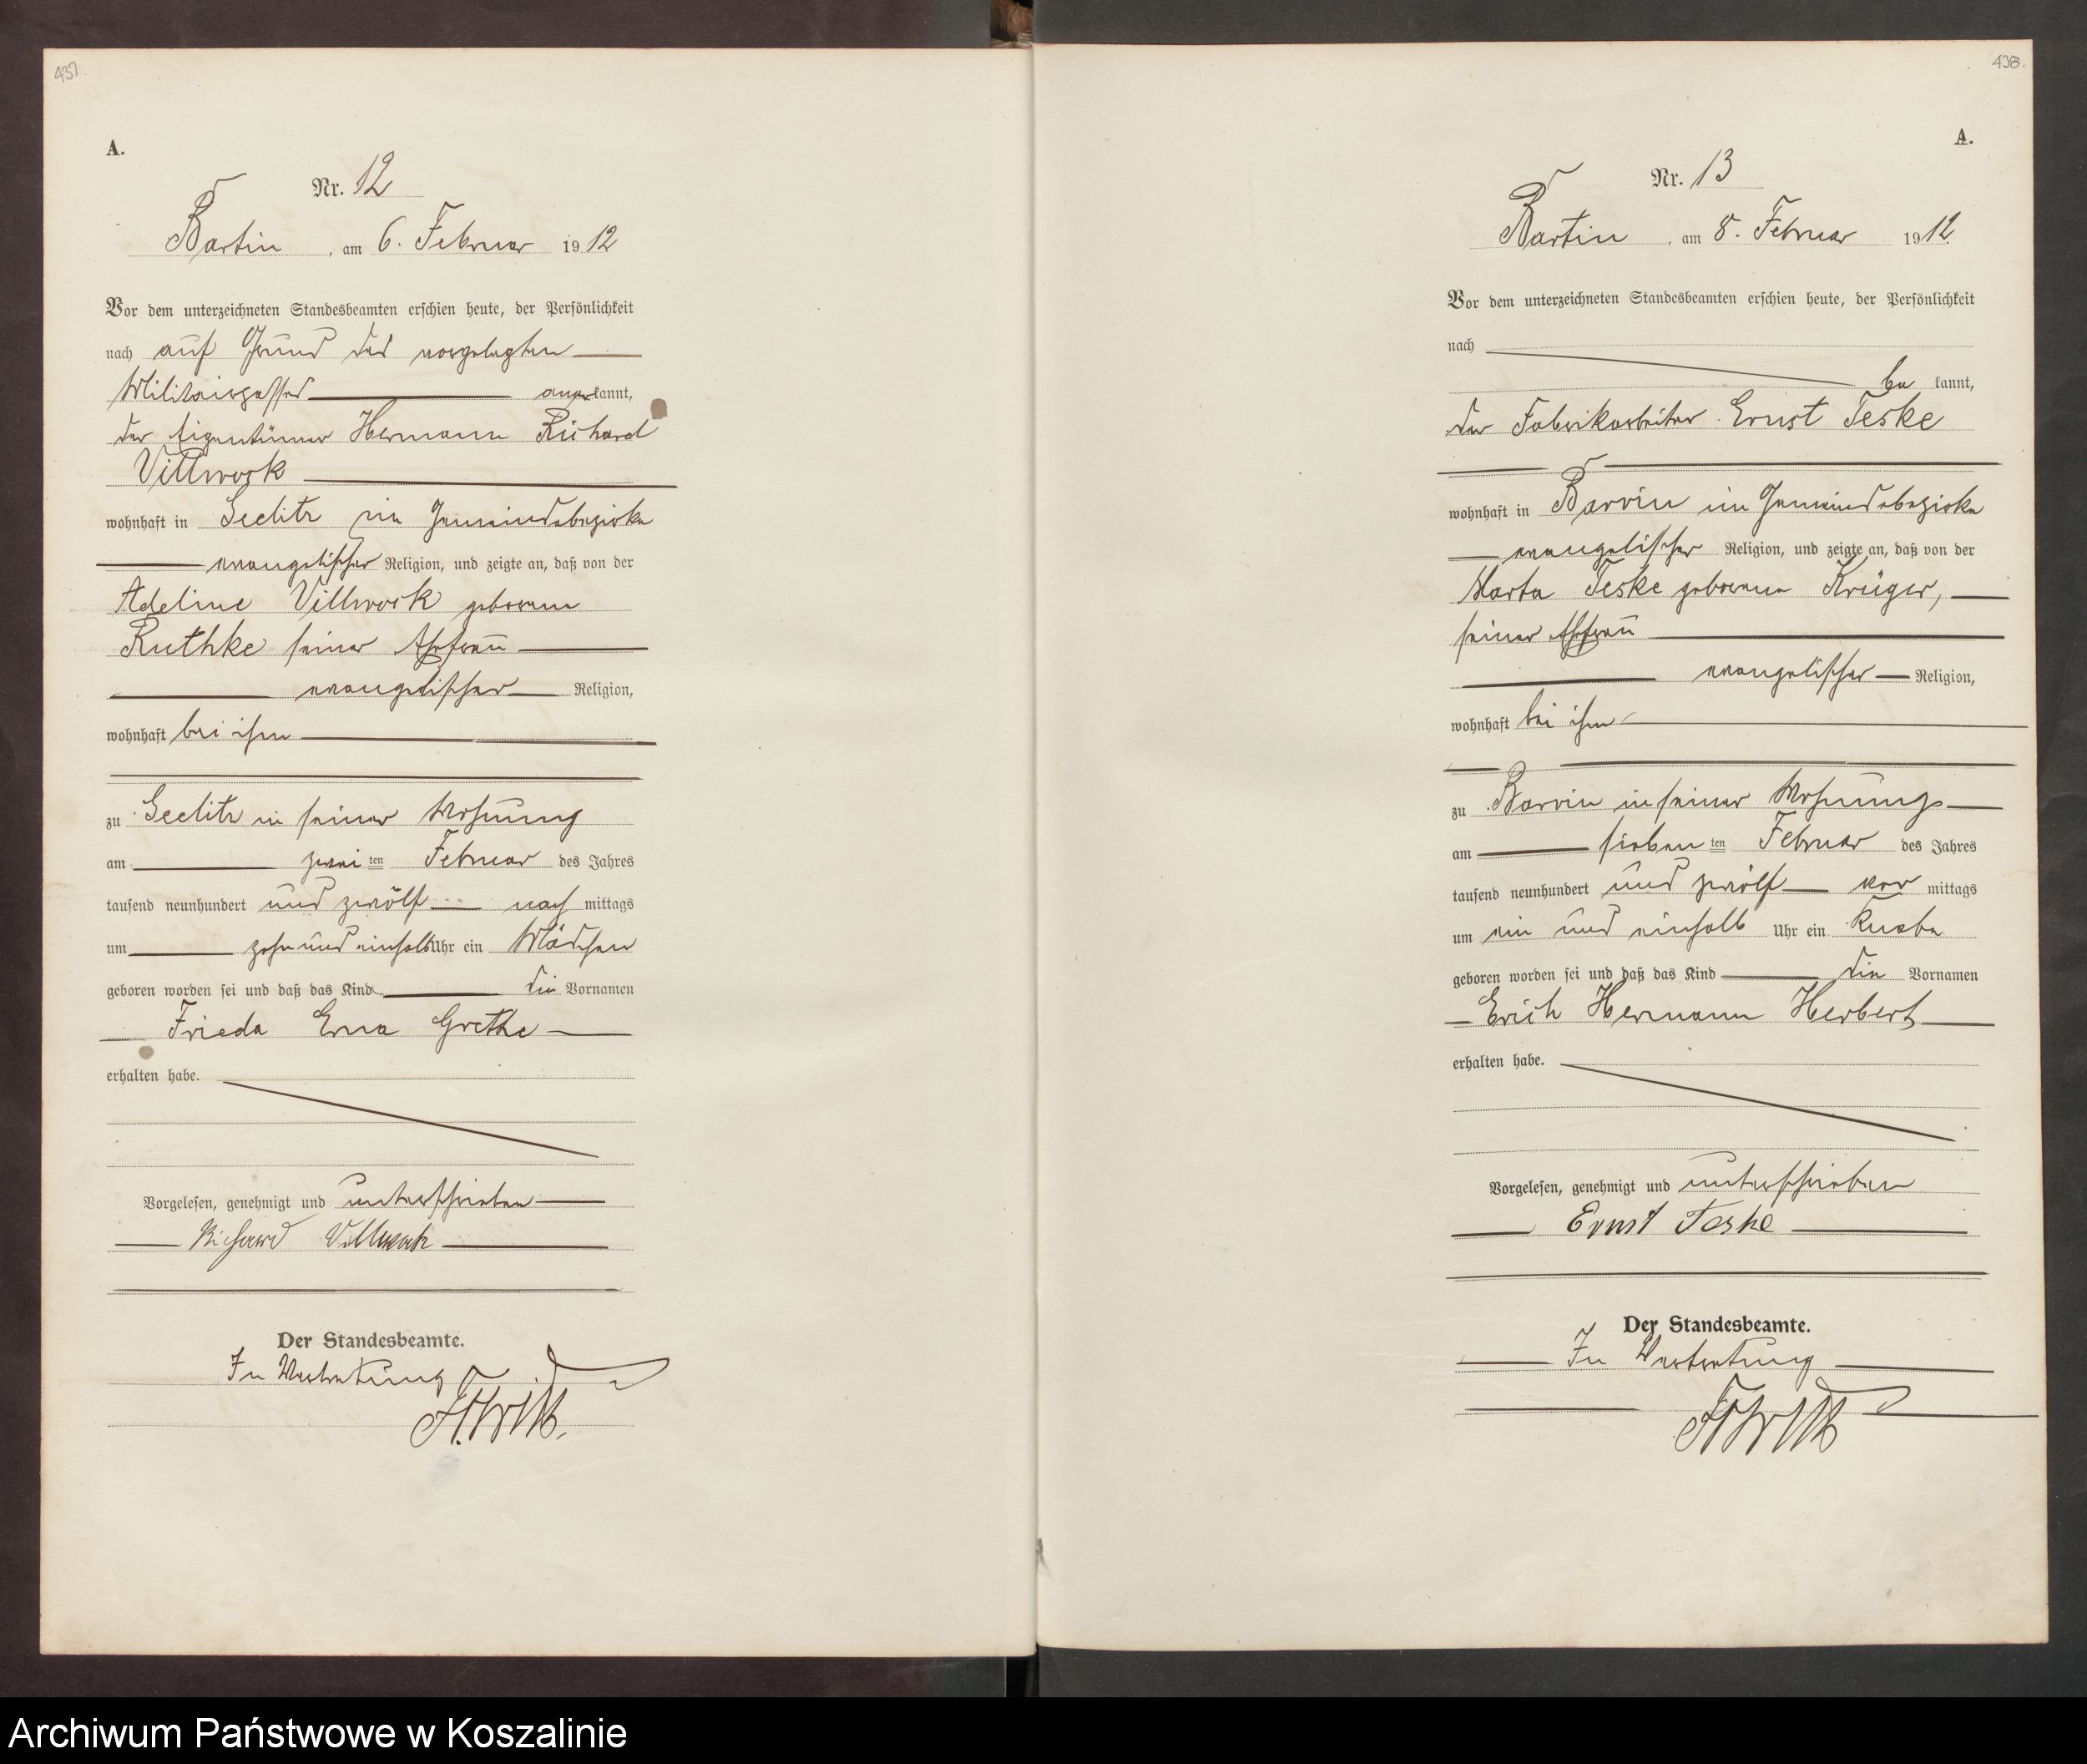 437.
A.
Nr. 12
Bartin, am 6. Februar 1912
Vor dem unterzeichneten Standesbeamten erschien heute, der Persönlichkeit
nach auf Grund des vorgelegten
Militairpasses anerkannt,
der Eigentümer Hermann Richard
Villwock
wohnhaft in Seelitz im Gemeindebezirke
evangelischer Religion, und zeigte an, daß von der
Adeline Villwock geborene
Ruthke seiner Ehefrau
evangelischer Religion,
wohnhaft bei ihm
zu Seelitz in seiner Wohnung
am zweiten Februar des Jahres
tausend neunhundert und zwölf nach mittags
um zehn und einhalb Uhr ein Mädchen
geboren worden sei und daß das Kind die Vornamen
Frieda Erna Grethe
erhalten habe.
Vorgelesen, genehmigt und unterschrieben
Richard Villwock
Der Standesbeamte.
In Vertretung
438.
A.
Nr. 13
Bartin, am 8. Februar 1912.
Vor dem unterzeichneten Standesbeamten erschien heute, der Persönlichkeit
nach
be kannt,
der Fabrikarbeiter Ernst Teske
wohnhaft in Barvin im Gemeindebezirke
evangelischer Religion, und zeigte an, daß von der
Marta Teske geborene Krüger,
seiner Ehefrau
evangelischer Religion,
wohnhaft bei ihm
zu Barvin in seiner Wohnung
am siebenten Februar des Jahres
tausend neunhundert und zwölf vor mittags
um ein und einhalb Uhr ein Knabe
geboren worden sei und daß das Kind die Vornamen
Erich Hermann Herbert
erhalten habe.
Vorgelesen, genehmigt und unterschrieben
Ernst Teske
Der Standesbeamte.
In Vertretung
Archiwum Państwowe w Koszalinie